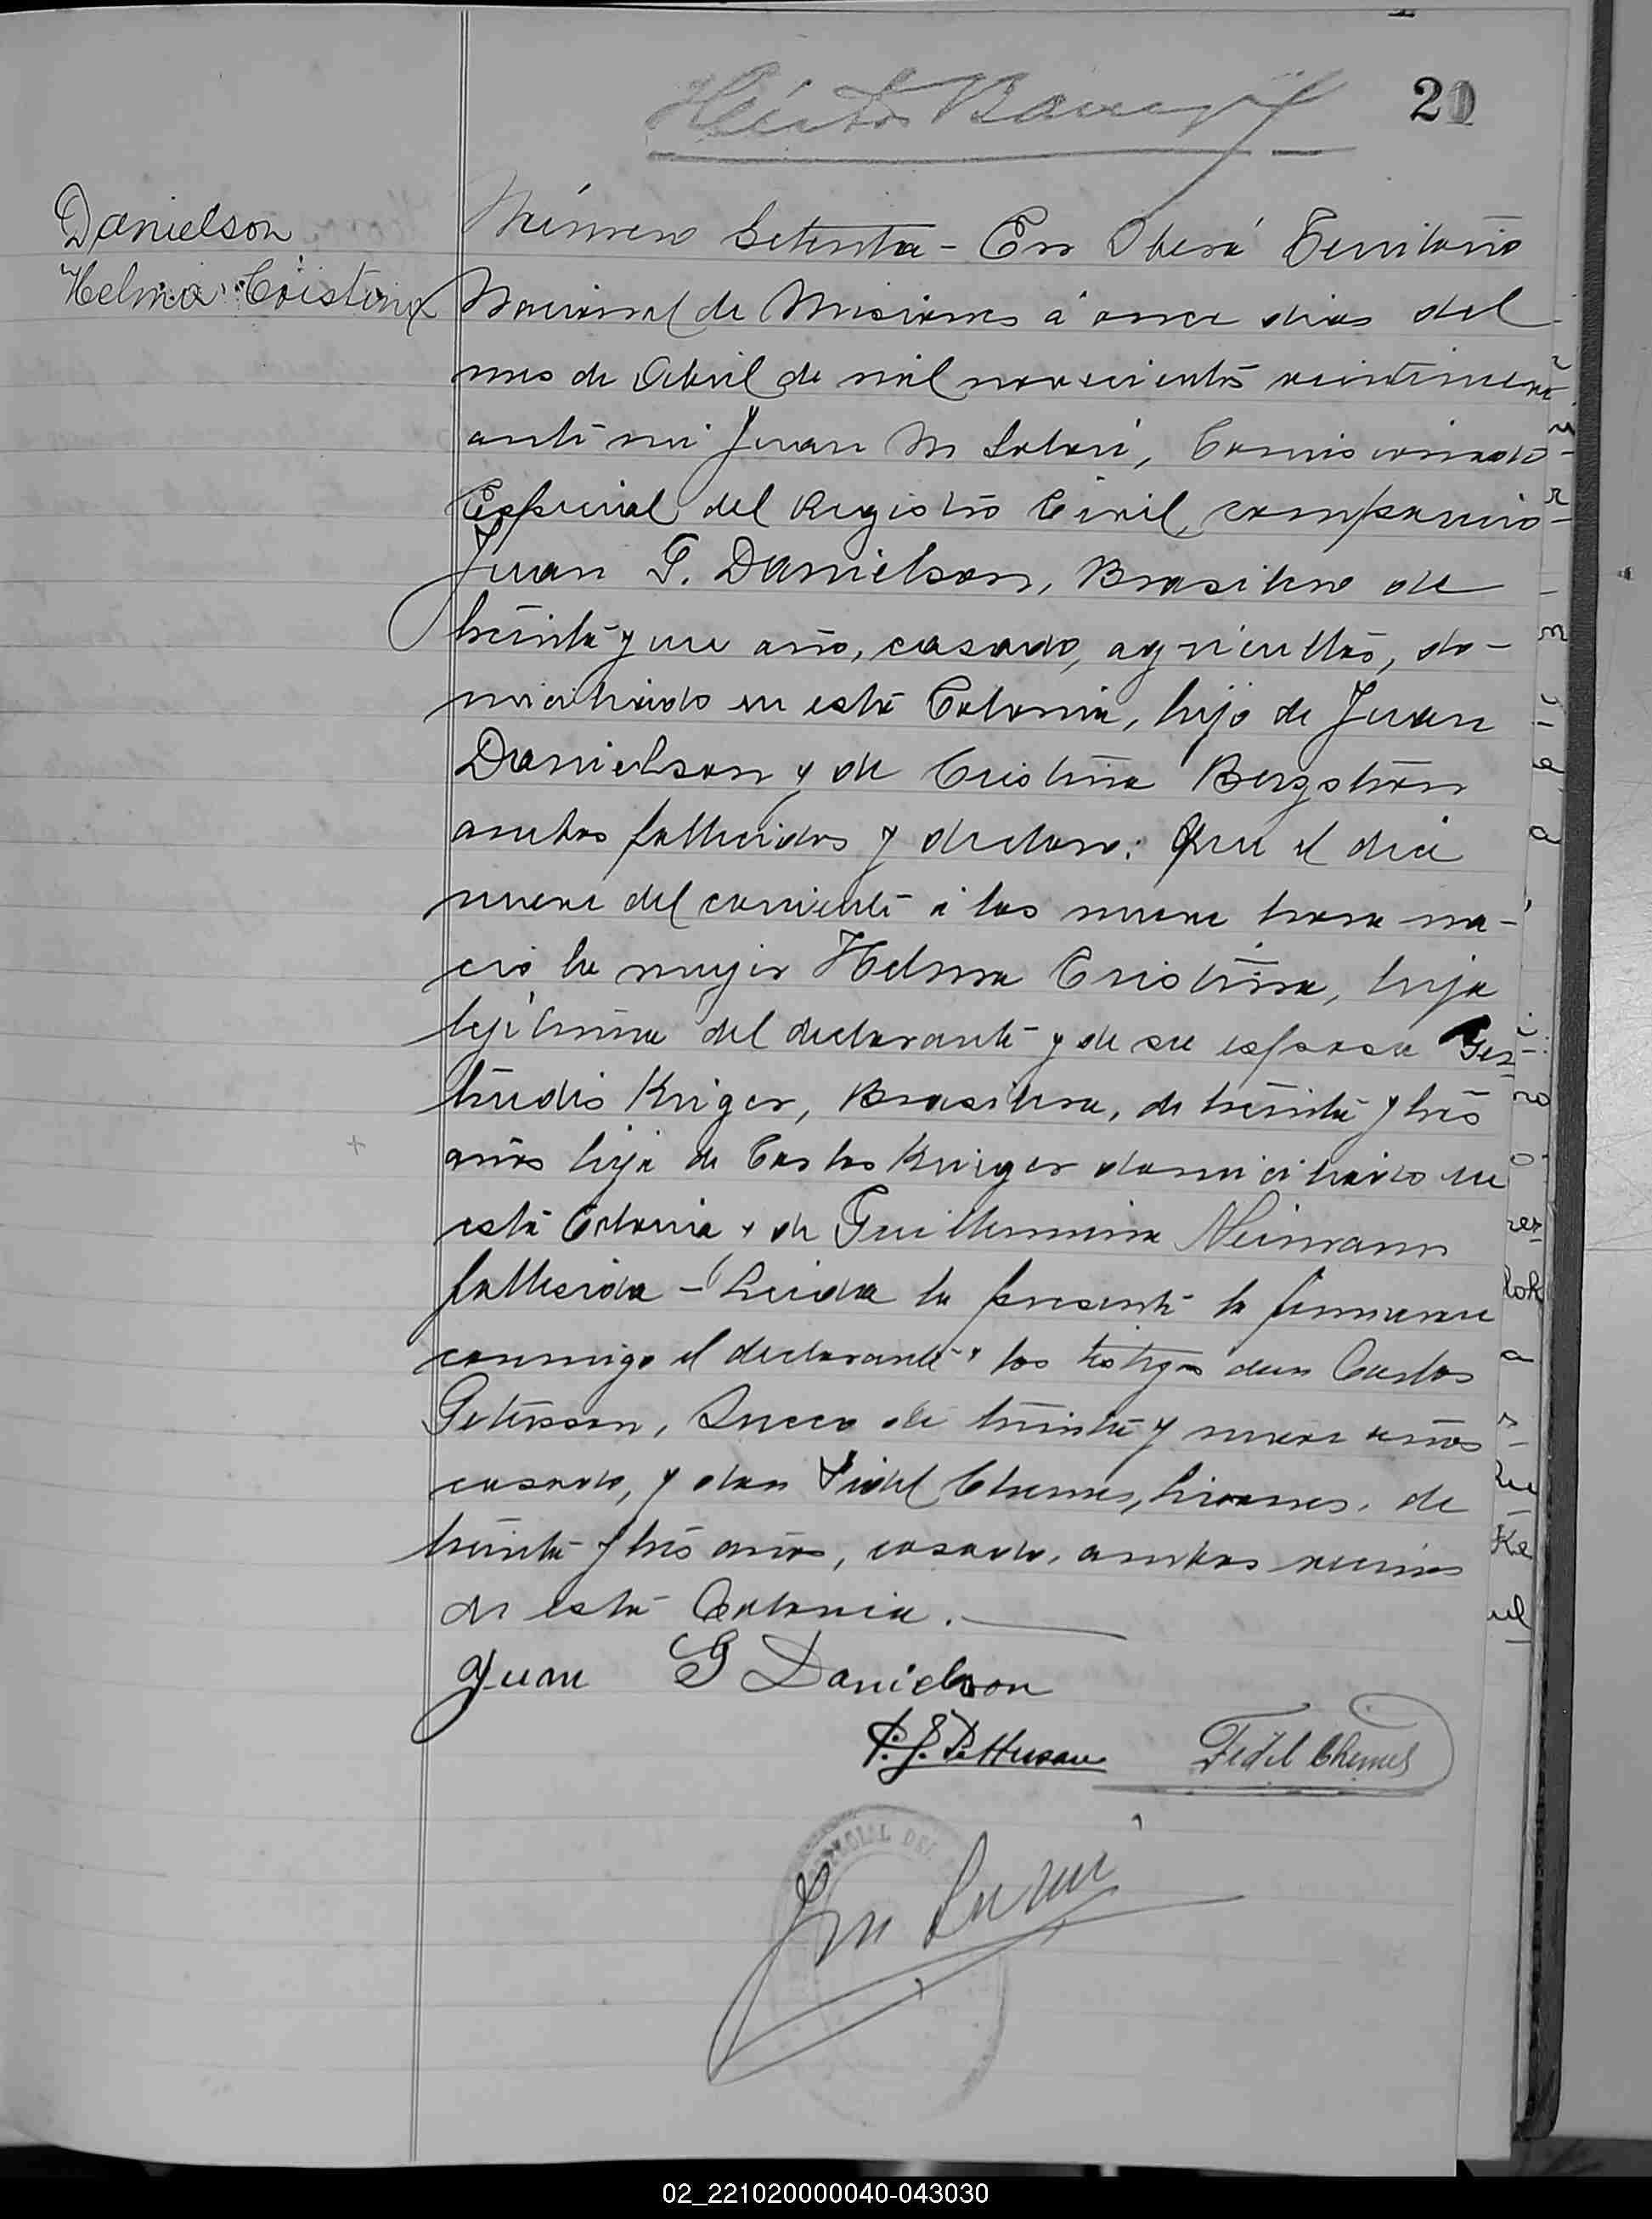 20
Danielson
Helma Cristina
Número Setenta - En Oberá Territorio
Nacional de Misiones á once dias del
mes de Abril de mil novecientos veintinueve
ante mi Juan M, Comisionado
Especial del Registro Civil, comparecio
Juan G. Danielson, Brasilero de
treinta y un año, casado, agricultor, do-
miciliado en esta Colonia, hijo de Juan
Danielson y de Cristina Bergstron
ambos fallecidos y declaro: Que el dia
nueve del corriente á las nueve hora na-
cio la mujer Helma Cristina, hija
lejitima del declarante y de su esposa Ger
trudis Kriger, Brasilera, de treinta y tres
años hija de Carlos Kriger domiciliado en
esta Colonia y de Guillermina Neimann
fallecida - Leida la presente la firmaron
conmigo el declarante y los testigos don Carlos
Peterson, Sueco de treinta y nueve años
casado, y don Fidel Chemes, de
treinta y tres años, casado, ambos vecinos
de esta Colonia.
Juan G Danielson
Fidel Chemes
02_221020000040-043030